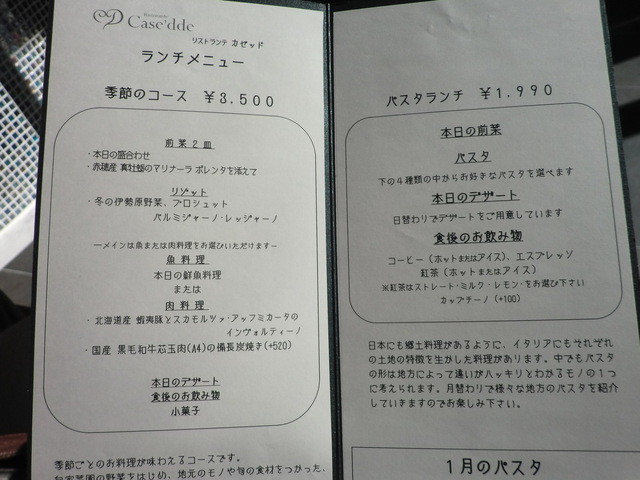 Ristorante
Case'dde
リストランテ カゼッド
ランチメニュー
季節のコース ¥3,500
前菜2皿
・本日の盛合わせ
・赤穂産 真牡蠣のマリナーラ ポレンタを添えて
リゾット
・冬の伊勢原野菜、プロシュット
パルミジャーノ・レッジャーノ
―メインは魚または肉料理をお選びいただけます―
魚料理
本日の鮮魚料理
または
肉料理
・北海道産 蝦夷豚とスカモルツァ・アッフミカータの
インヴォルティーノ
・国産 黒毛和牛芯玉肉(A4)の備長炭焼き(+520)
本日のデザート
食後のお飲み物
小菓子
季節ごとのお料理が味わえるコースです。
自家菜園の野菜をはじめ、地元のモノや旬の食材をつかった、
パスタランチ ¥1,990
本日の前菜
パスタ
下の4種類の中からお好きなパスタを選べます
本日のデザート
日替わりでデザートをご用意しています
食後のお飲み物
コーヒー(ホットまたはアイス)、エスプレッソ
紅茶(ホットまたはアイス)
※紅茶はストレート・ミルク・レモン・をお選び下さい
カップチーノ(+100)
日本にも郷土料理があるように、イタリアにもそれぞれ
の土地の特徴を生かした料理があります。中でもパスタ
の形は地方によって違いがハッキリとわかるモノの1つ
に考えられます。月替わりで様々な地方のパスタを紹介
していきますのでお楽しみ下さい。
1月のパスタ